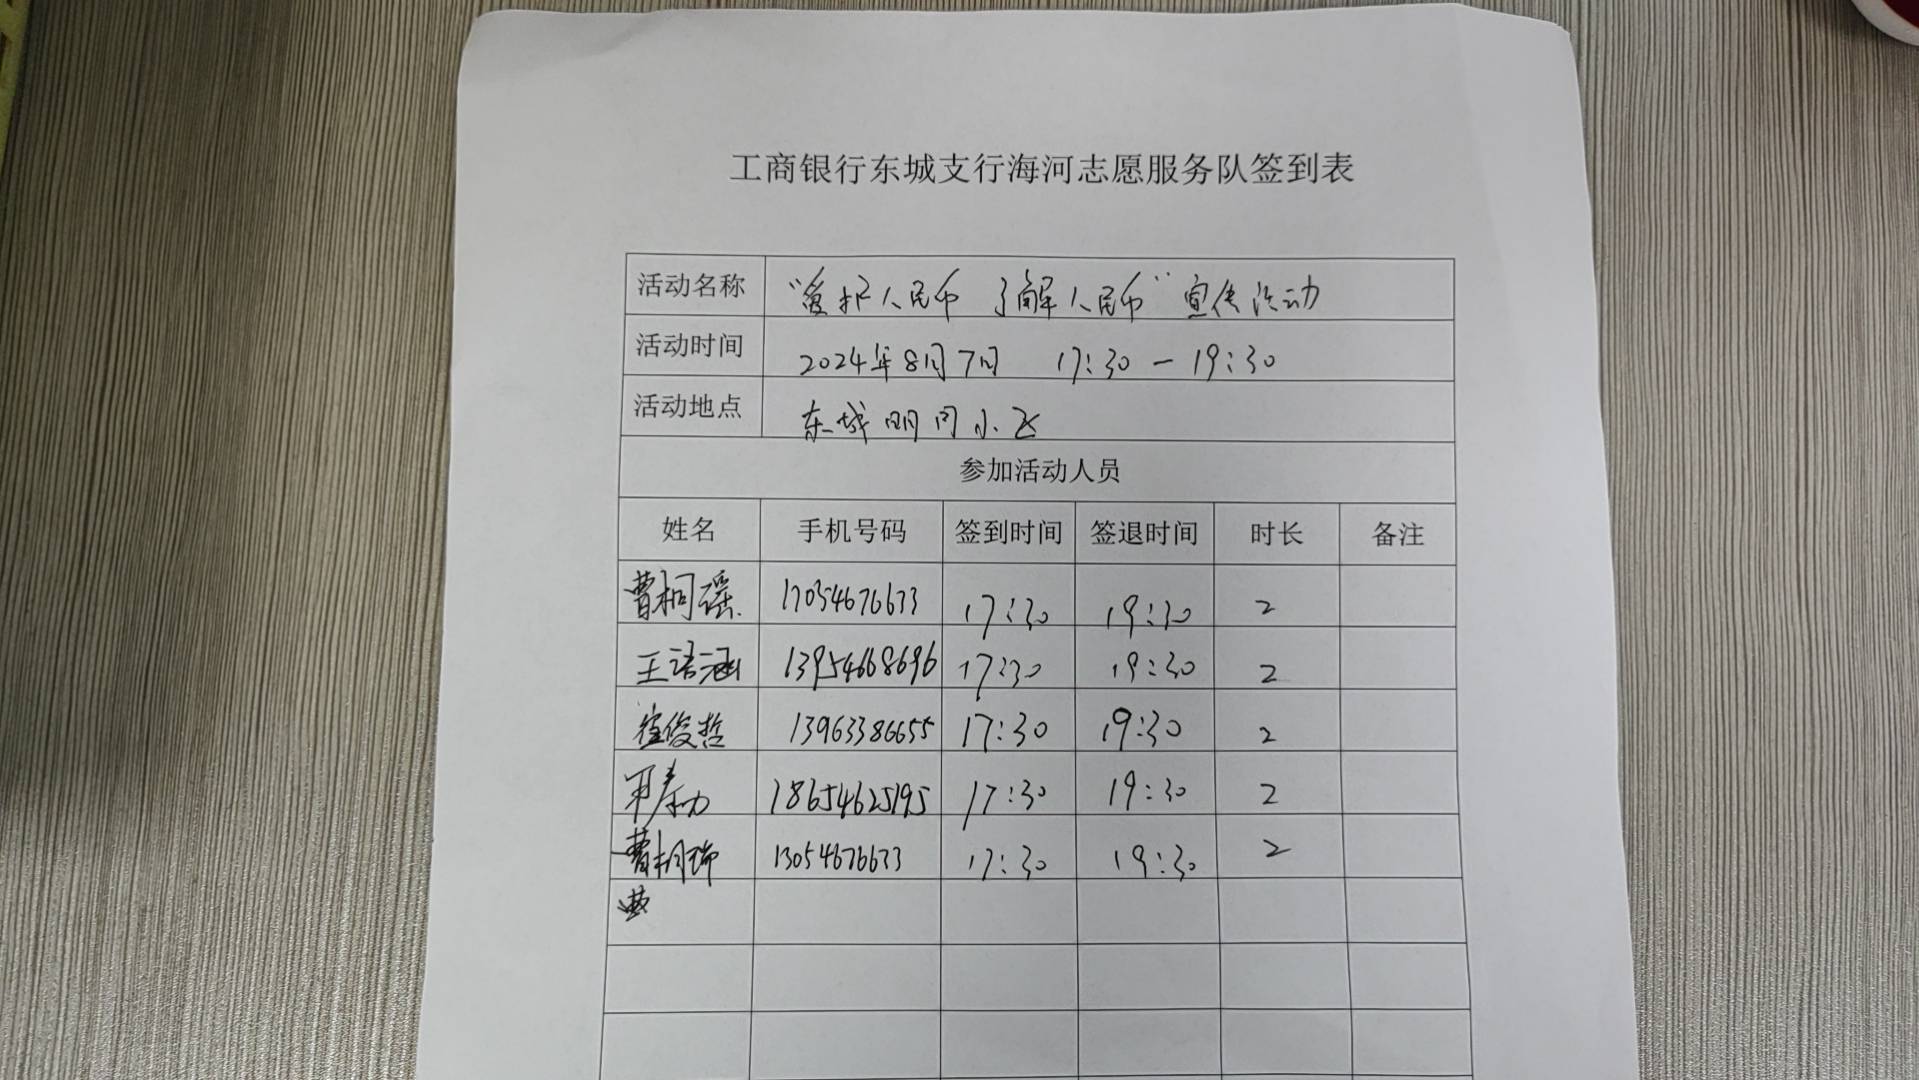 工商银行东城支行海河志愿服务队签到表
活动名称 “爱护人民币 了解人民币”宣传活动
活动时间 2024年8月7日 17:30 — 19:30
活动地点 东城明月小区
参加活动人员
姓名 手机号码 签到时间 签退时间 时长 备注
曹桐谣 17054676673 17:30 19:30 2
王语涵 13954668696 17:30 19:30 2
崔俊哲 13963386655 17:30 19:30 2
18654625195 17:30 19:30 2
曹桐瑞 13054676673 17:30 19:30 2